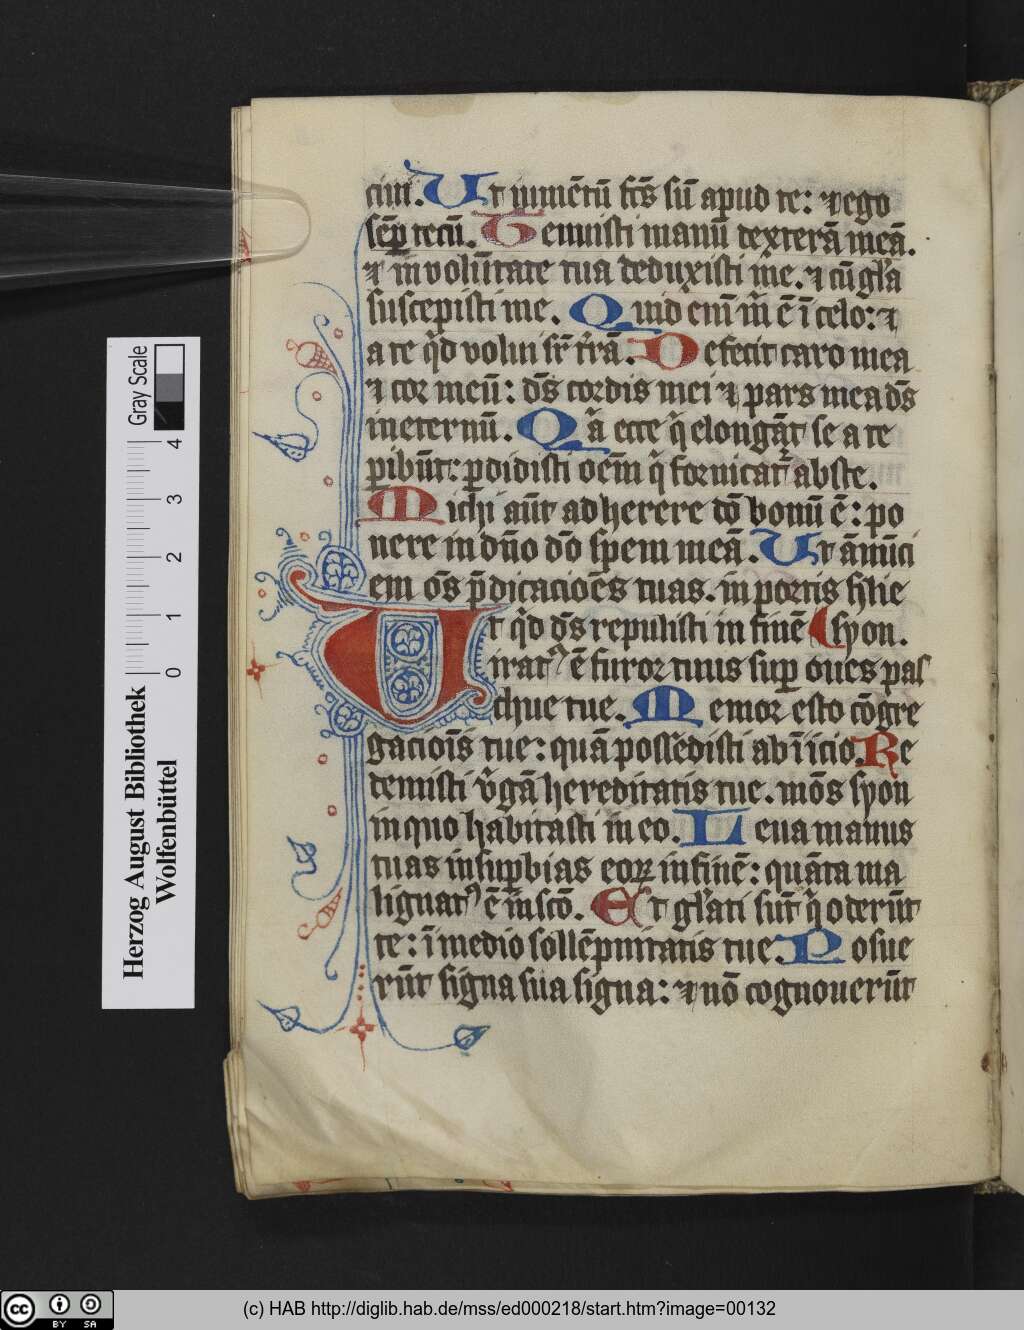 ciui. Ut iumētū fcs̄ sū apud te: ⁊ ego
sēp tecū. Tenuisti manū dexterā meā.
⁊ in volūtate tua deduxisti me. ⁊ cū gl̄a
suscepisti me. Quid enī m̄ ē ī celo: ⁊
a te q̄d volui sr̄ tr̄ā. Defecit caro mea
⁊ cor meū: ds̄ cordis mei ⁊ pars mea ds̄
in eternū. Qā ecce q̄ elongāt se a te
pibūt: pdidisti oēm q̄ fornicat̄ abste.
Michi aūt adherere dō bonū ē: po
nere in dn̄o dō spem meā. Ut āmūci
em os̄ p̄dicacioēs tuas. in portis filie
Ut q̄d ds̄ repulisti in finē syon.
iratꝰ ē furor tuus sup oues pas
chue tue. Memor esto cōgre
gaciois̄ tue: quā possēdisti ab īicio. Re
demisti v̄gā hereditatis tue. mōs syon
in quo habitasti in eo. Leua manus
tuas in supbias eoꝝ in finē: quāta ma
lignatꝰ ē in scō. Et gl̄ati sūt q̄ oderūt
te: ī medio sollēpnitatis tue. Posue
rūt signa sua signa: ⁊ nō cognouerūt
Gray Scale
4 3 2 1 0
Herzog August Bibliothek
Wolfenbüttel
cc BY SA
(c) HAB http://diglib.hab.de/mss/ed000218/start.htm?image=00132